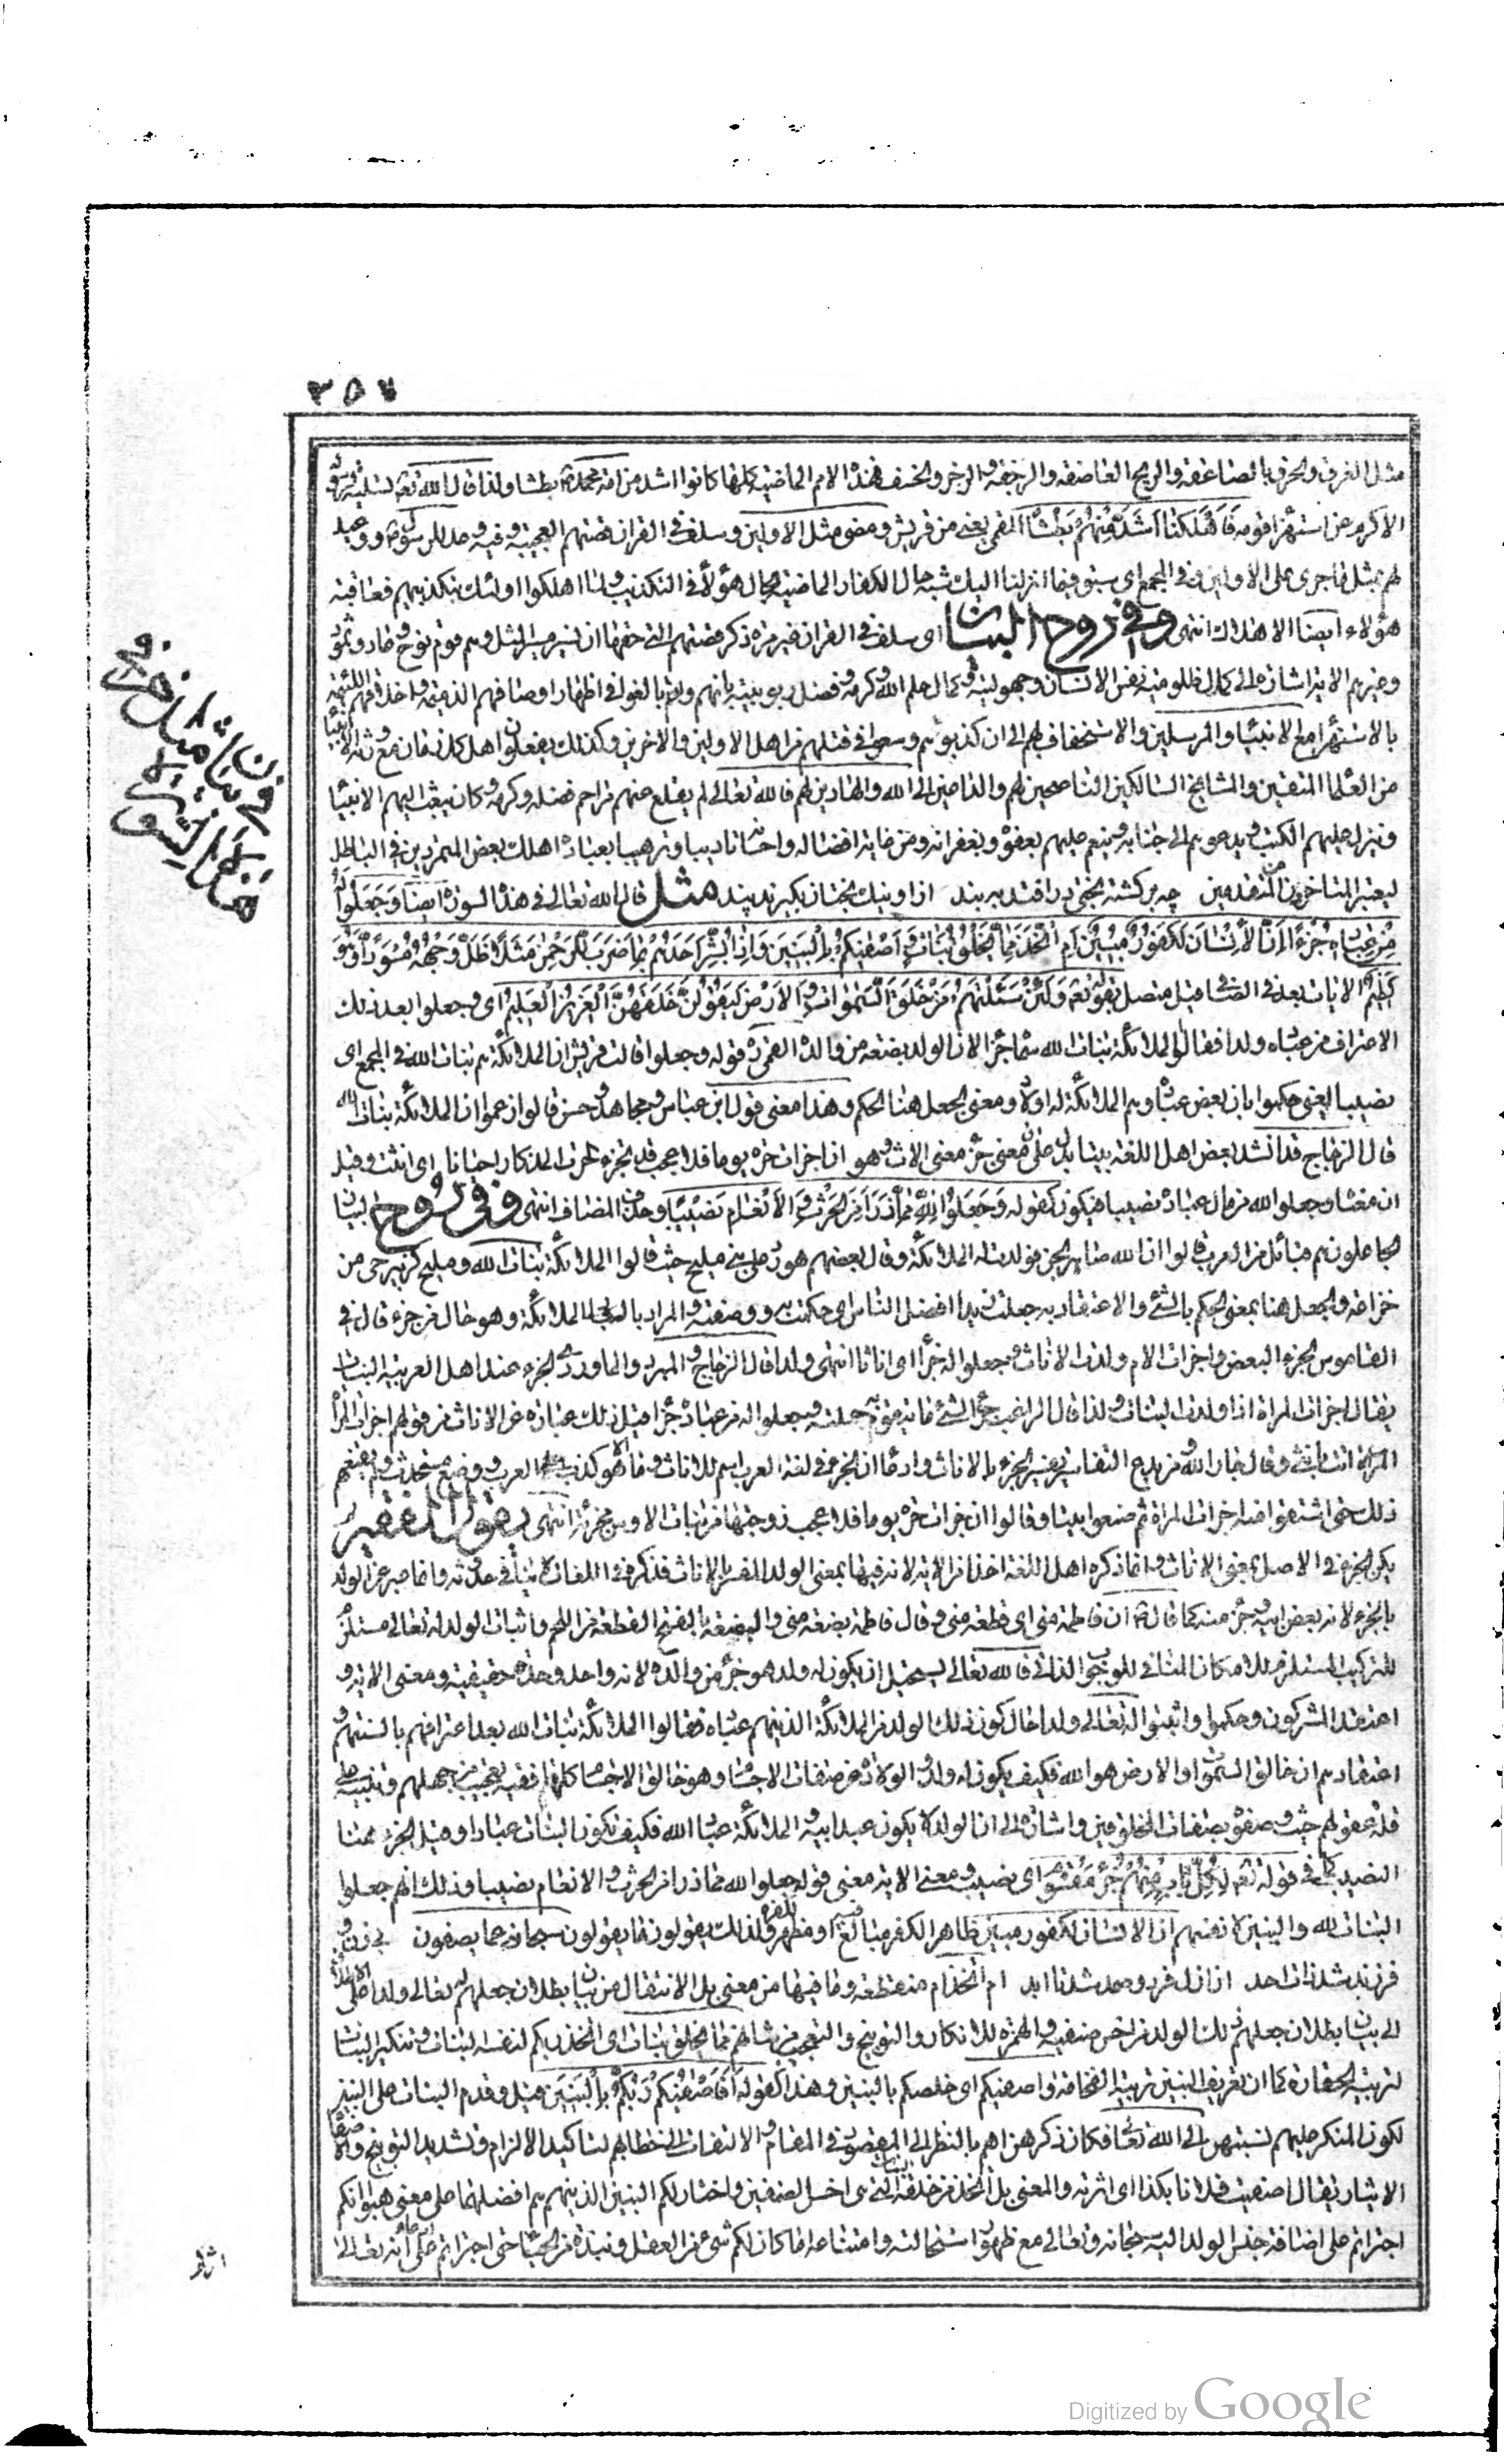 ٣٥٧
مثل الغرق والحرق بالصاعقة والريح العاصفة والرجفة والزجر والخسف فهذه الامم الماضية كلها كانوا اشد من امة محمد بطشا ولذا قال الله تعالى
الاكرم عن استهزاء قومه فَاَهْلَكْنَا اَشَدَّ مِنْهُمْ بَطْشًا القمي يعني من قريش ومضى مثل الاولين وسلف في القرآن قصتهم العجيبة وفيه وعد للرسول ووعيد
لهم بمثل ما جرى على الاولين وفي المجمع اى سبق فيما انزلنا اليك شبه حال الكفار الماضية بحال هؤلاء في التكذيب ولما اهلكوا اولئك بتكذيبهم فعاقبة
هؤلاء ايضا الاهلاك انتهى وفي روح البيان اى سلف في القرآن غير مرة ذكر قصتهم التى حقها ان تسير مسير المثل وهم قوم نوح وعاد وثمود
وغيرهم الاية اشارة الى كمال ظلومية نفس الانسان وجهوليته وكمال حلم الله وكرمه وفضل ربوبيته بانهم وان بالغوا في اظهار اوصافهم الذميمة واخلاقهم اللئيمة
بالاستهزاء مع الانبياء والمرسلين والاستخفاف بهم الى ان كذبوهم وسعوا في قتلهم من اهل الاولين والاخرين وكذلك يفعلون اهل كل زمان مع ورثة الانبياء
من العلماء المتقين والمشايخ السالكين الناصحين لهم والداعين الى الله والهادين لهم فالله تعالى لم يقطع عنهم مراحم فضله وكرمه وكان يبعث اليهم الانبياء
وينزل عليهم الكتب ويدعوهم الى جنابه وينعم عليهم بعفوه وبغفرانه ومن غاية افضاله واحسانه تاديبا وترهيبا بعباده اهلك بعض المتمردين في الباطل
ليعتبر المتاخرون من المتقدمين چه بر كشته بختى در افتد ببند ازاو نيك بختان بكيرند پند مثل قال الله تعالى في هذه السورة ايضا وَجَعَلُوا لَهُ
مِنْ عِبَادِهِ جُزْءًا اِنَّ الْاِنْسَانَ لَكَفُورٌ مُبِينٌ اَمِ اتَّخَذَ مِمَّا يَخْلُقُ بَنَاتٍ وَاَصْفٰيكُمْ بِالْبَنِينَ وَاِذَا بُشِّرَ اَحَدُهُمْ بِمَا ضَرَبَ لِلرَّحْمٰنِ مَثَلًا ظَلَّ وَجْهُهُ مُسْوَدًّا وَهُوَ
كَظِيمٌ الايات بعد في الصافي قيل متصل بقوله تعالى وَلَئِنْ سَئَلْتَهُمْ مَنْ خَلَقَ السَّمٰوَاتِ وَالْاَرْضَ لَيَقُولُنَّ خَلَقَهُنَّ الْعَزِيزُ الْعَلِيمُ اى وجعلوا بعد ذلك
الاعتراف من عباده ولدا فقالوا الملائكة بنات الله سماه جزءا لان الولد بضعة من والده القمي قوله وجعلوا قالت قريش ان الملائكة هم بنات الله في المجمع اى
نصيبا يعني حكموا بان بعض عباده وهم الملائكة له اولاد ومعنى الجعل هنا الحكم وهذا معنى قول ابن عباس ومجاهد وحسن قالوا زعموا ان الملائكة بنات الله
قال الزجاج قد انشد بعض اهل اللغة بيتا يدل على ان معنى جزء معنى الاناث وهو ان اجزات حرة يوما فلا عجب قد تجزء الحرة المذكار احيانا اى انثت وقيل
ان معناه وجعلوا لله من مال عباده نصيبا فيكون كقوله وَجَعَلُوا لِلّٰهِ مِمَّا ذَرَاَ مِنَ الْحَرْثِ وَالْاَنْعَامِ نَصِيبًا وحذف المضاف انتهى وفي روح البيان
الجاعلون هم قبائل من العرب قالوا ان الله صاهر الجن فولدت له الملائكة وقال بعضهم هو رد على بني مليح حيث قالوا الملائكة بنات الله ومليح كزبير حى من
خزاعة والجعل هنا بمعنى الحكم بالشئ والاعتقاد به جعلت زيدا افضل الناس اى حكمت به ووصفته والمراد بالعباد الملائكة وهو حال من جزء قال في
القاموس الجزء البعض واجزات الام ولدت الاناث وجعلوا له جزءا اى اناثا انتهى ولذا قال الزجاج والمبرد والماوردى الجزء عند اهل العربية البنات
يقال اجزات المراة اذا ولدت البنات ولذا قال الراغب جزء الشئ ما يتقوم به جملته وجعلوا له من عباده جزءا قيل ذلك عبارة عن الاناث من قولهم اجزات المراة
المراة اتت بانثى وقال جار الله من بدع التفاسير تفسير الجزء بالاناث وادعاء ان الجزء في لغة العرب اسم للاناث وما هو الا كذب على العرب ووضع مستحدث ولم يقنعهم
ذلك حتى اشتقوا منه اجزات المراة ثم صنعوا بيتا وقالوا ان اجزات حرة يوما فلا عجب زوجتها من بنات الاوس مجزئة انتهى يقول الفقير
يكن الجزء في الاصل بمعنى الاناث وانما ذكره اهل اللغة اخذا من الاية لانه فيها بمعنى الولد المفسر بالاناث فذكره في اللغات وانما عبر عن الولد
بالجزء لانه بعض ابيه وجزء منه كما قال ان فاطمة منى اى قطعة منى وقال فاطمة بضعة منى والبضعة بالفتح القطعة من اللحم واثبات الولد له تعالى مستلزم
للتركيب المستلزم للامكان المنافي للوجوب الذاتي فالله تعالى يستحيل ان يكون له ولد هو جزء من والده لانه واحد وحدة حقيقية ومعنى الاية و
اعتقد المشركون وحكموا واثبتوا له تعالى ولدا حال كون ذلك الولد من الملائكة الذين هم عباده فقالوا الملائكة بنات الله بعد اعترافهم بالسنتهم و
اعتقادهم ان خالق السموات والارض هو الله فكيف يكون له ولد والولادة من صفات الاجسام وهو خالق الاجسام كلها ففيه تعجيب من جهلهم وتنبيه على
قلة عقولهم حيث وصفوه بصفات المخلوقين واشارة الى ان الولد لا يكون عبد ابيه والملائكة عباد الله فكيف تكون البنات عبادا وقيل الجزء ههنا
النصيب كما في قوله تعالى لِكُلِّ بَابٍ مِنْهُمْ جُزْءٌ مَقْسُومٌ اى نصيب ومعنى الاية معنى قوله جعلوا لله مما ذرا من الحرث والانعام نصيبا وذلك انهم جعلوا
البنات لله والبنين لانفسهم ان الانسان لكفور مبين ظاهر الكفر مبالغ فيه او مظهر لكفره ولذلك يقولون ما يقولون سبحانه عما يصفون
فرزند شد ذات احد از ازل فرد وصمد شد تا ابد ام اتخذ ام منقطعة وما فيها من معنى بل الانتقال من بيان بطلان جعلهم له تعالى ولدا على
الى بيان بطلان جعلهم ذلك الولد من اخس صنفيه والهمزة للانكار والتوبيخ والتعجيب من شانهم مما يخلق بنات اى اتخذ ربكم لنفسه البنات وتنكير البنات
لتربية الحقارة كما ان تعريف البنين لتربية الفخامة واصفيكم اى خلصكم بالبنين وهذا كقوله اَفَاَصْفٰيكُمْ رَبُّكُمْ بِالْبَنِينَ قيل وقدم البنات على البنين
لكون المنكر عليهم نسبتهن الى الله تعالى فكان ذكرهن اهم بالنظر الى المقصود في المقام والالتفات الى خطابهم لتاكيد الالزام وتشديد التوبيخ والاصفاء
الايثار يقال اصفيت فلانا بكذا اى اثرته والمعنى بل اتخذ من خلقه البنات التى هى اخس الصنفين واختار لكم البنين الذين هم افضلهما على معنى هبوا انكم
اجتراتم على اضافة جنس الولد اليه سبحانه وتعالى مع ظهور استحالته وامتناعه اما كان لكم شئ من العقل ونبذة من الحياء حتى اجتراتم على انه تعالى
Digitized by Google